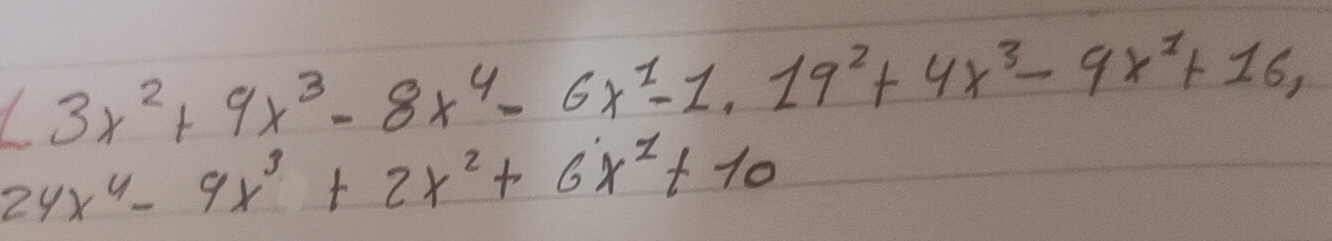 1 3x² + 9x³ - 8x⁴ - 6x¹ - 1. 19² + 4x³ - 9x¹ + 16,
24x⁴ - 9x³ + 2x² + 6x¹ + 10